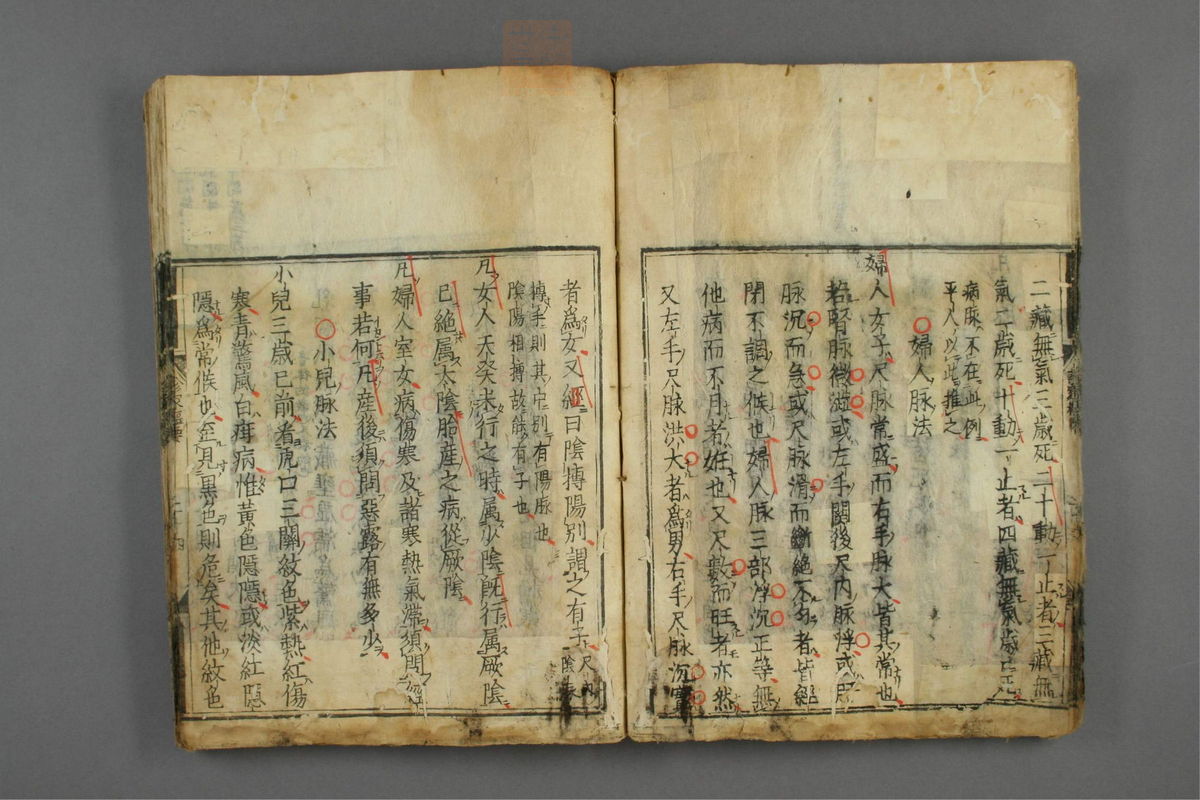 二藏無氣三歲死二十動一止者三藏無
氣二歲死十動一止者四藏無氣歲
病脉不在此例
平人以此推之
○婦人脉法
婦人女子尺脉常盛而右手脉大皆其常也
若腎脉微澁或左手關後尺内脉浮或肝
脉沉而急或尺脉滑而斷絶不匀者皆經
閉不調之候也婦人脉三部浮沉正等無
他病而不月者妊也又尺數而旺者亦然
又左手尺脉洪大者爲男右手尺脉沉實
者爲女又經曰陰搏陽別謂之有子尺内
陰脉
搏手則其中別有陽脉也
陰陽相搏故能有子也
凡女人天癸未行之時属少陰旣行属厥陰
已絶属太陰胎産之病從厥陰
凡婦人室女病傷寒及諸寒熱氣滞須問
事若何凡産後須問惡露有無多少
○小兒脉法
小兒三歲已前看虎口三關紋色紫熱紅傷
寒青驚風白疳病惟黄色隱隱或淡紅隱
隱爲常候也至見黒色則危矣其他紋色